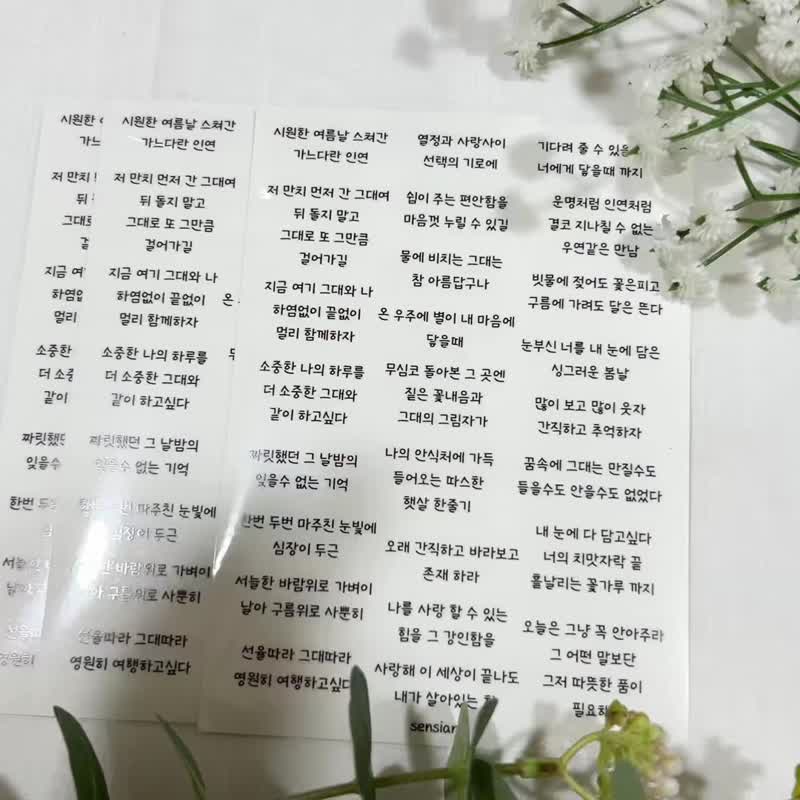 시원한 여름날 스쳐간
가느다란 인연
저 만치 먼저 간 그대여
뒤 돌지 말고
그대로 또 그만큼
걸어가길
지금 여기 그대와 나
하염없이 끝없이
멀리 함께하자
소중한 나의 하루를
더 소중한 그대와
같이 하고싶다
짜릿했던 그 날밤의
잊을수 없는 기억
한번 두번 마주친 눈빛에
심장이 두근
서늘한 바람위로 가벼이
날아 구름위로 사뿐히
선율따라 그대따라
영원히 여행하고싶다
열정과 사랑사이
선택의 기로에
쉼이 주는 편안함을
마음껏 누릴 수 있길
물에 비치는 그대는
참 아름답구나
온 우주에 별이 내 마음에
닿을때
무심코 돌아본 그 곳엔
짙은 꽃내음과
그대의 그림자가
나의 안식처에 가득
들어오는 따스한
햇살 한줄기
오래 간직하고 바라보고
존재 하라
나를 사랑 할 수 있는
힘을 그 강인함을
사랑해 이 세상이 끝나도
내가 살아있는 한
기다려 줄 수 있을
너에게 닿을때 까지
운명처럼 인연처럼
결코 지나칠 수 없는
우연같은 만남
빗물에 젖어도 꽃은피고
구름에 가려도 달은 뜬다
눈부신 너를 내 눈에 담은
싱그러운 봄날
많이 보고 많이 웃자
간직하고 추억하자
꿈속에 그대는 만질수도
들을수도 안을수도 없었다
내 눈에 다 담고싶다
너의 치맛자락 끝
흩날리는 꽃가루 까지
오늘은 그냥 꼭 안아주라
그 어떤 말보단
그저 따뜻한 품이
필요해
시원한 여름날 스쳐간
가느다란 인연
저 만치 먼저 간 그대여
뒤 돌지 말고
그대로 또 그만큼
걸어가길
지금 여기 그대와 나
하염없이 끝없이
멀리 함께하자
소중한 나의 하루를
더 소중한 그대와
같이 하고싶다
짜릿했던 그 날밤의
잊을수 없는 기억
마주친 눈빛에
심장이 두근
바람위로 가벼이
날아 구름위로 사뿐히
선율따라 그대따라
영원히 여행하고싶다
온
시원한
저 만치
뒤
그대로
지금
하염없이
멀리
소중한
더
같이
짜릿했던
잊을수
한번 두번
서늘한
영원히